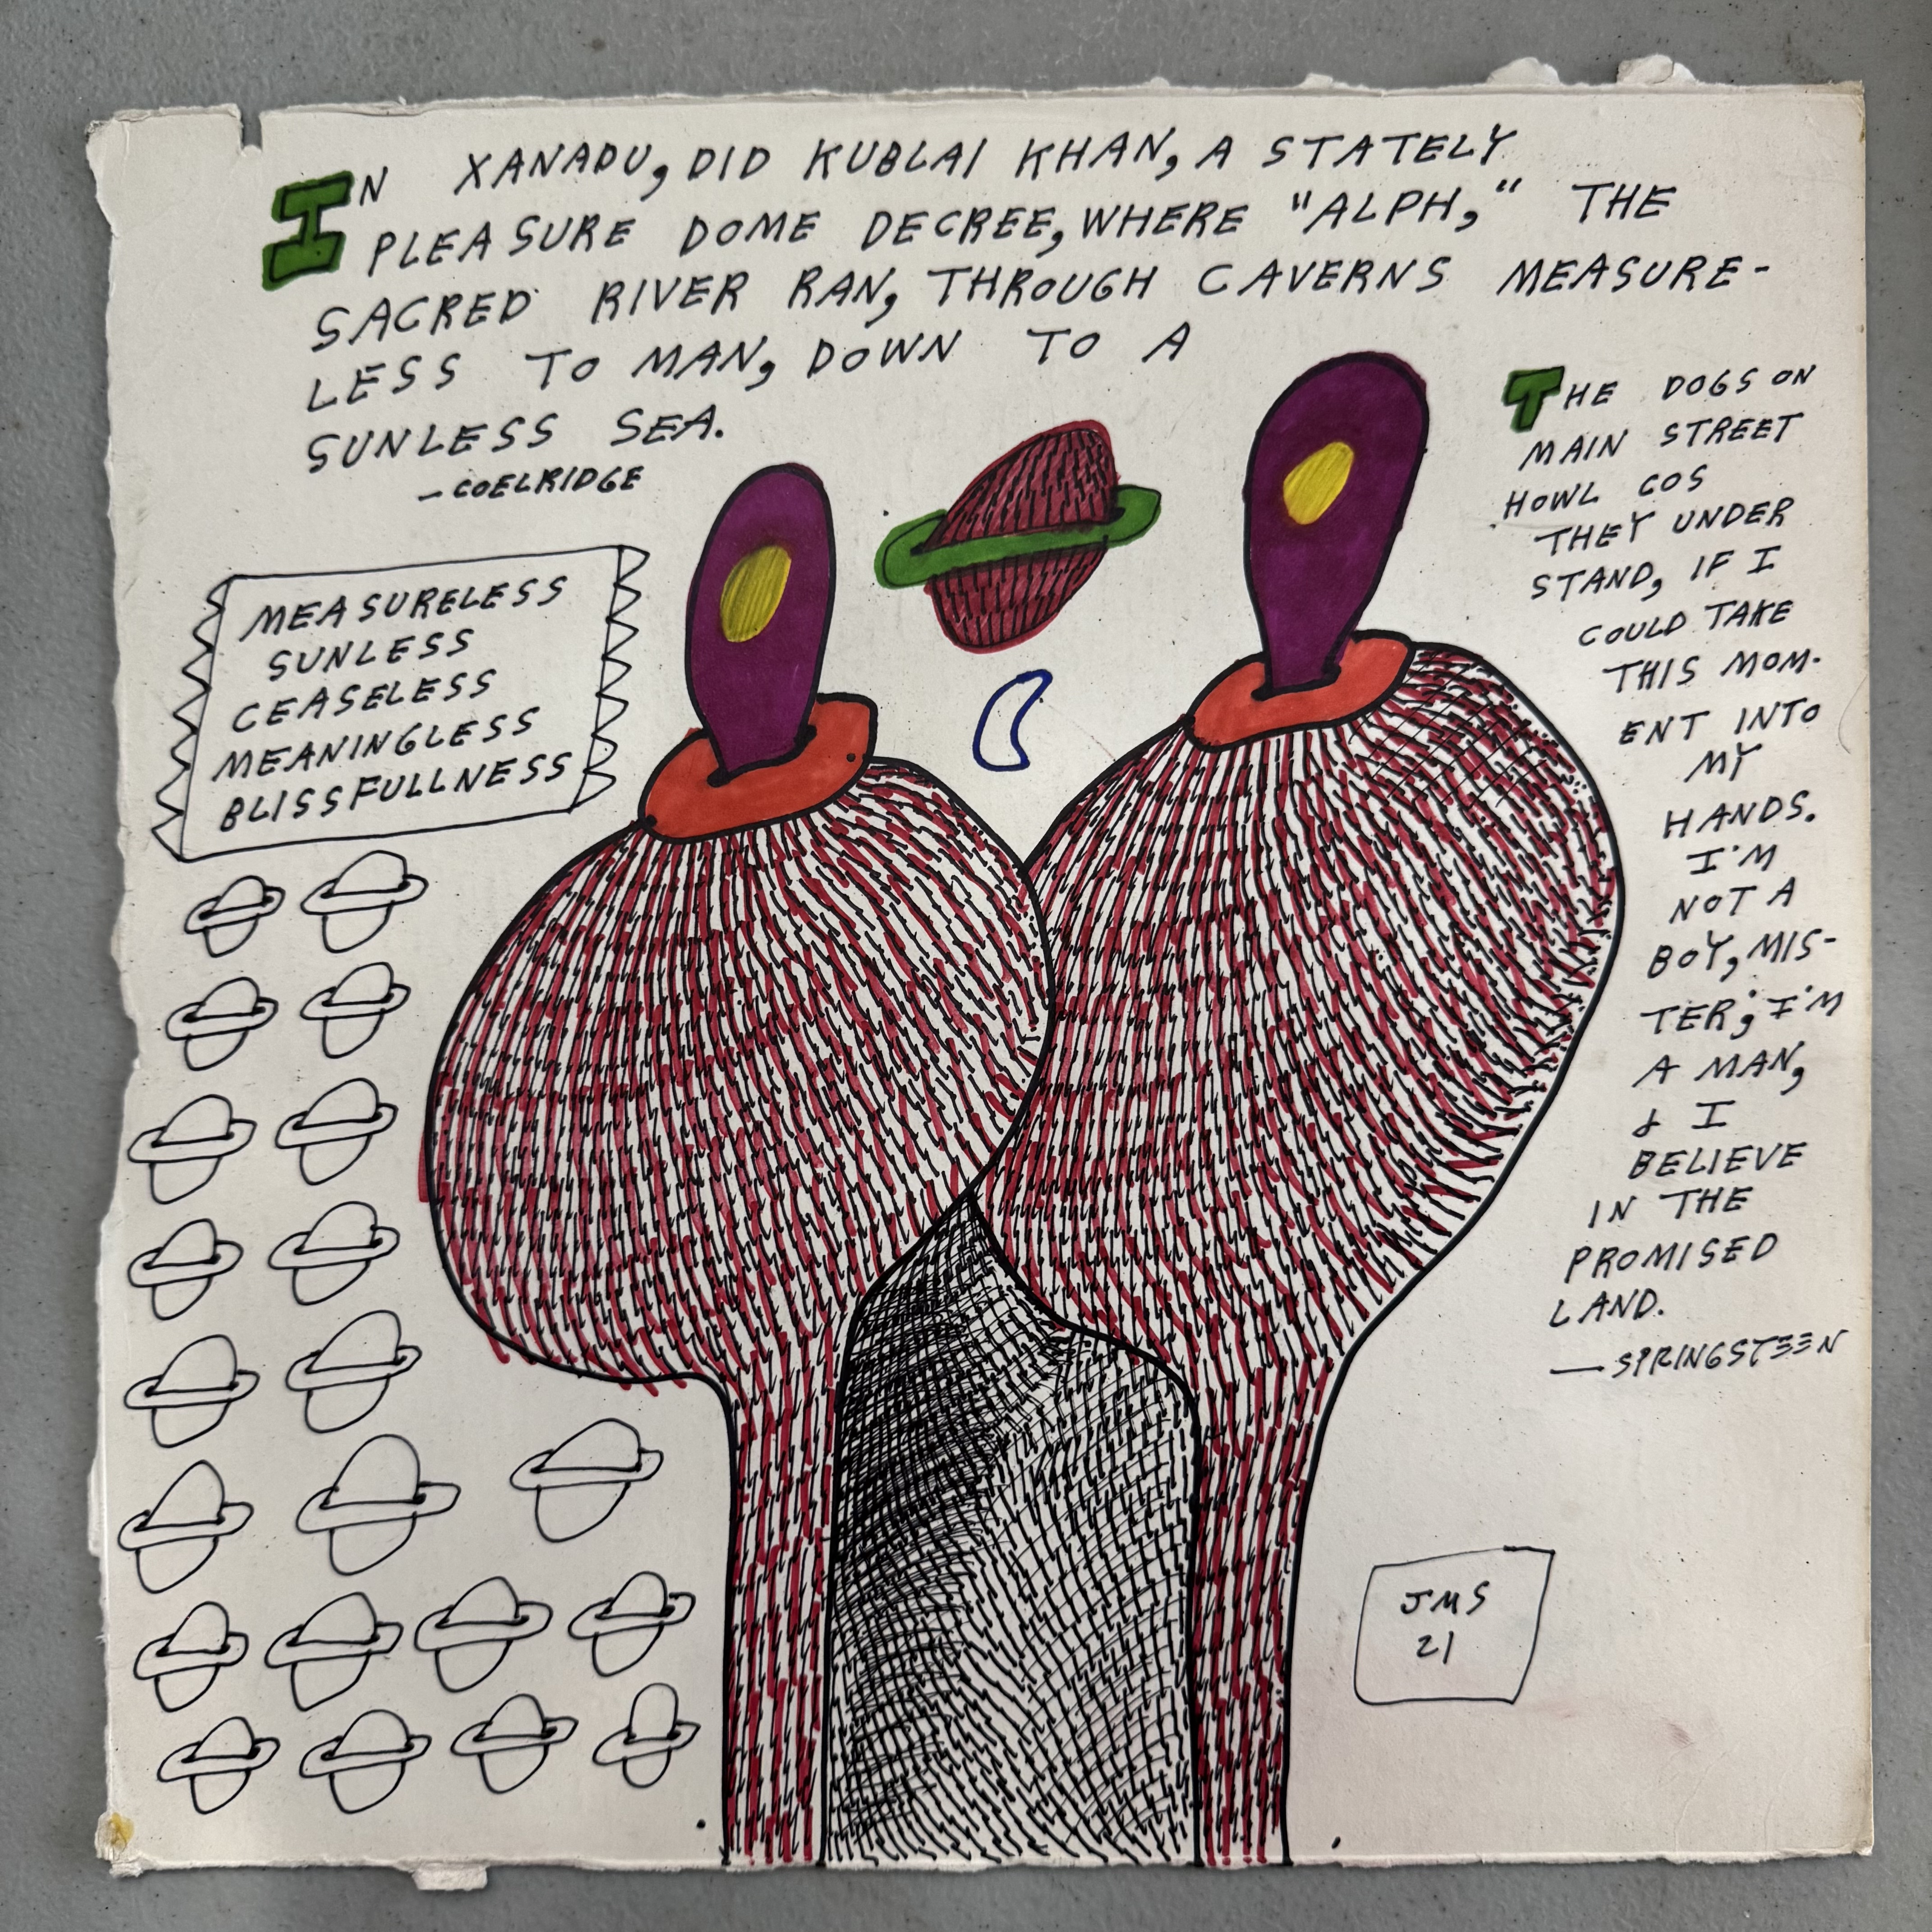 IN XANADU, DID KUBLAI KHAN, A STATELY
PLEASURE DOME DECREE, WHERE "ALPH," THE
SACRED RIVER RAN, THROUGH CAVERNS MEASURE-
LESS TO MAN, DOWN TO A
SUNLESS SEA.
-COELRIDGE
MEASURELESS
SUNLESS
CEASELESS
MEANINGLESS
BLISSFULLNESS
THE DOGS ON
MAIN STREET
HOWL COS
THEY UNDER
STAND, IF I
COULD TAKE
THIS MOM-
ENT INTO
MY
HANDS.
I'M
NOT A
BOY, MIS-
TER; I'M
A MAN,
& I
BELIEVE
IN THE
PROMISED
LAND.
—SPRINGSTEEN
JMS
21